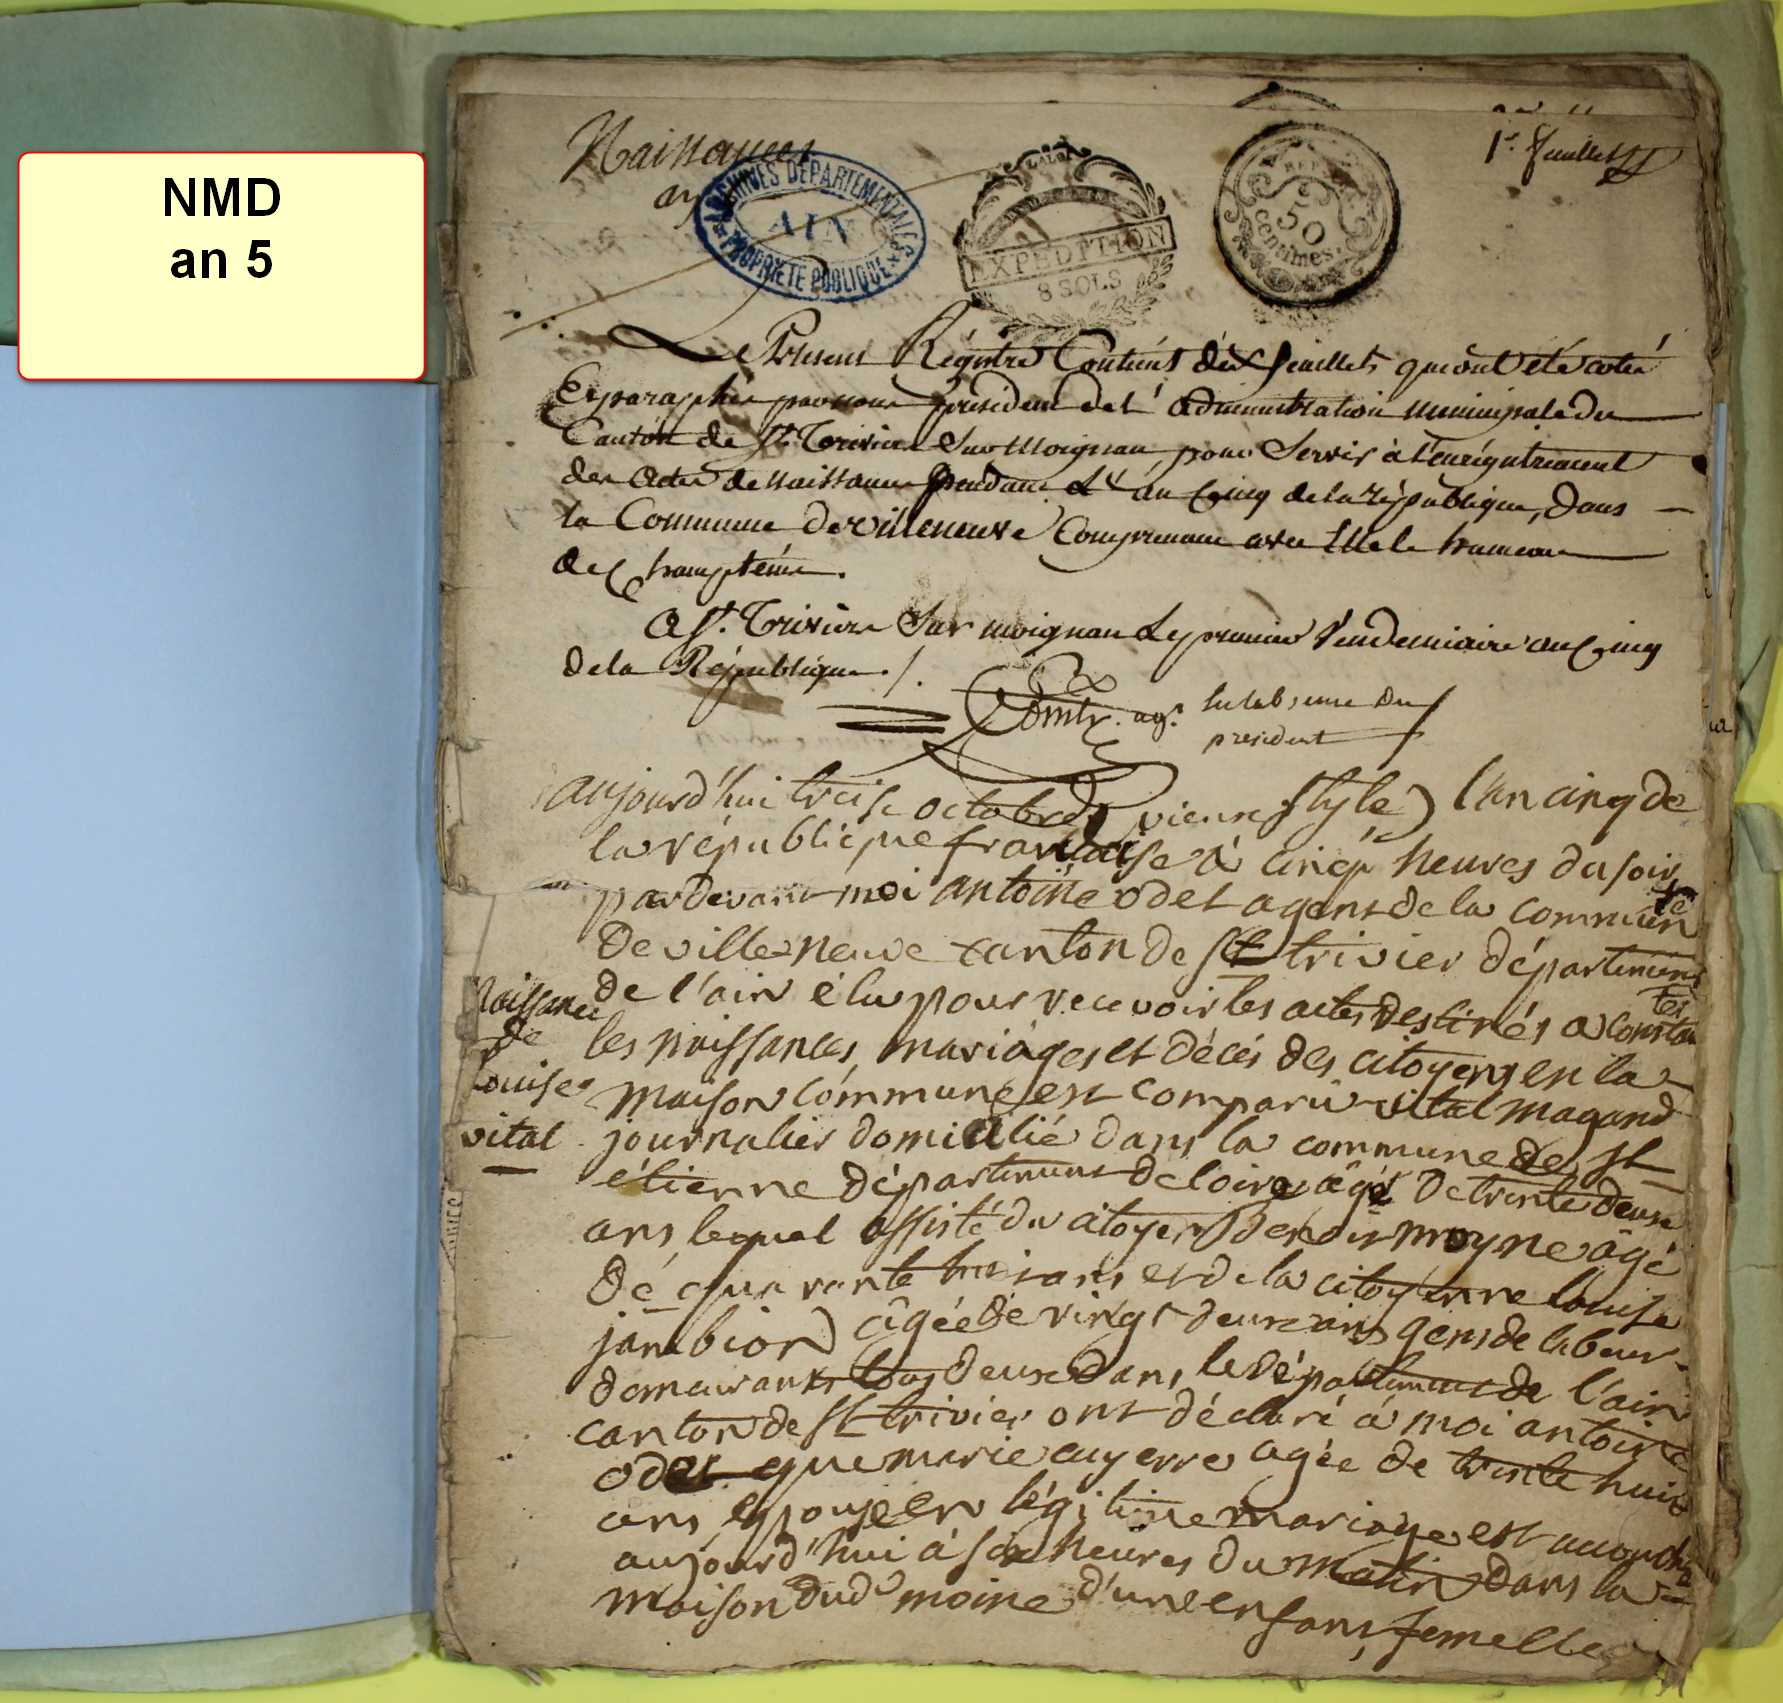 NMD
an 5
Naissances
an
ARCHIVES DEPARTEMENTALES
AIN
PROPRIETE PUBLIQUE
EXPEDITION
8 SOLS
50
centimes.
1er feuillet
Le Présent Régistre Contient dix feuillets qui ont été cotés
Et paraphés par nous président de l'administration municipale du
Canton de St. Trivier Sur Moignan pour Servir à l'enrégistrement
des actes de naissances pendant L'an Cinq de la république, dans
la Commune de villeneuve Comprenant avec Elle le hameau
de Champteins.
A St. Trivier Sur moignan Le premier Vendemiaire an Cinq
de la République ./.
agt.
president
aujourd'hui treise octobre (vieux style) l'an cinq de
la république française à cinq heures du soir
pardevant moi antoine odet agent de la commune
de villeneuve canton de st trivier département
de l'ain élu pour recevoir les actes destinés a constater
les naissances, mariages et décés des citoyens en la
maison commune est comparu vital magand
journalier domicilié dans la commune de st
étienne département de loire âgé de trente deux
ans lequel assisté du citoyen moyne âgé
de quarante trois ans et de la citoyenne louise
jambion âgée de vingt deux ans gens de labeur
demeurants tous deux dans le département de l'ain
canton de st trivier ont déclaré à moi antoine
odet que marie cuyerre agée de trente huit
ans epouse en légitime mariage est accouchée
aujourd'hui à six heures du matin dans la
maison dud moine d'une enfant femelle
Naissance
de
Louise
vital